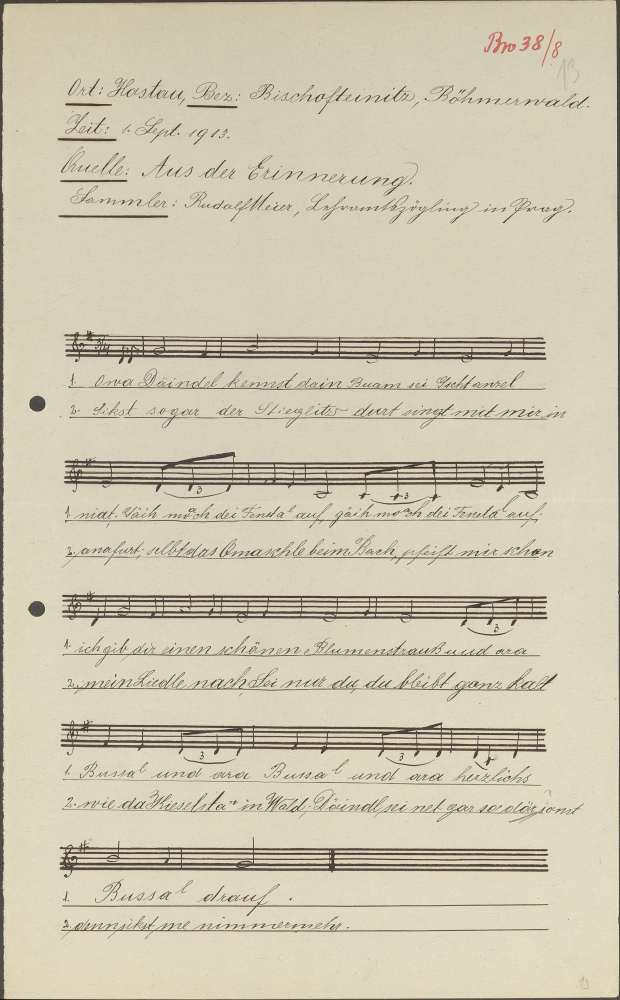 Bro 38/8
13
Ort: Hostau, Bez: Bischofteinitz, Böhmerwald.
Zeit: 1. Sept. 1913.
Quelle: Aus der Erinnerung.
Sammler: Rudolf Meier, Lehramtszögling in Prag.
3/4
1. Owa Däindel kennst dain Buam sei
2. Sikst sogar der Stieglitz durt singt mit mir in
3 3
1. niat. Däih mach dei Fensta'l auf, gäih mach dei Fensta'l auf;
2. anafurt; selbt das Omaschle beim Bach, pfeift mir schon
3
1. ich gib dir einen schönen Blumenstrauß und ara
2. mein Liedle nach. Sei nur du, du bleibt ganz kalt
3 3
1. Bussal und ara Bussal und ara herzlichs
2. wie da Kieselsta in Wald; Däindl, sei net gar so
1. Bussal drauf.
2. dann sikst me nimmermehr.